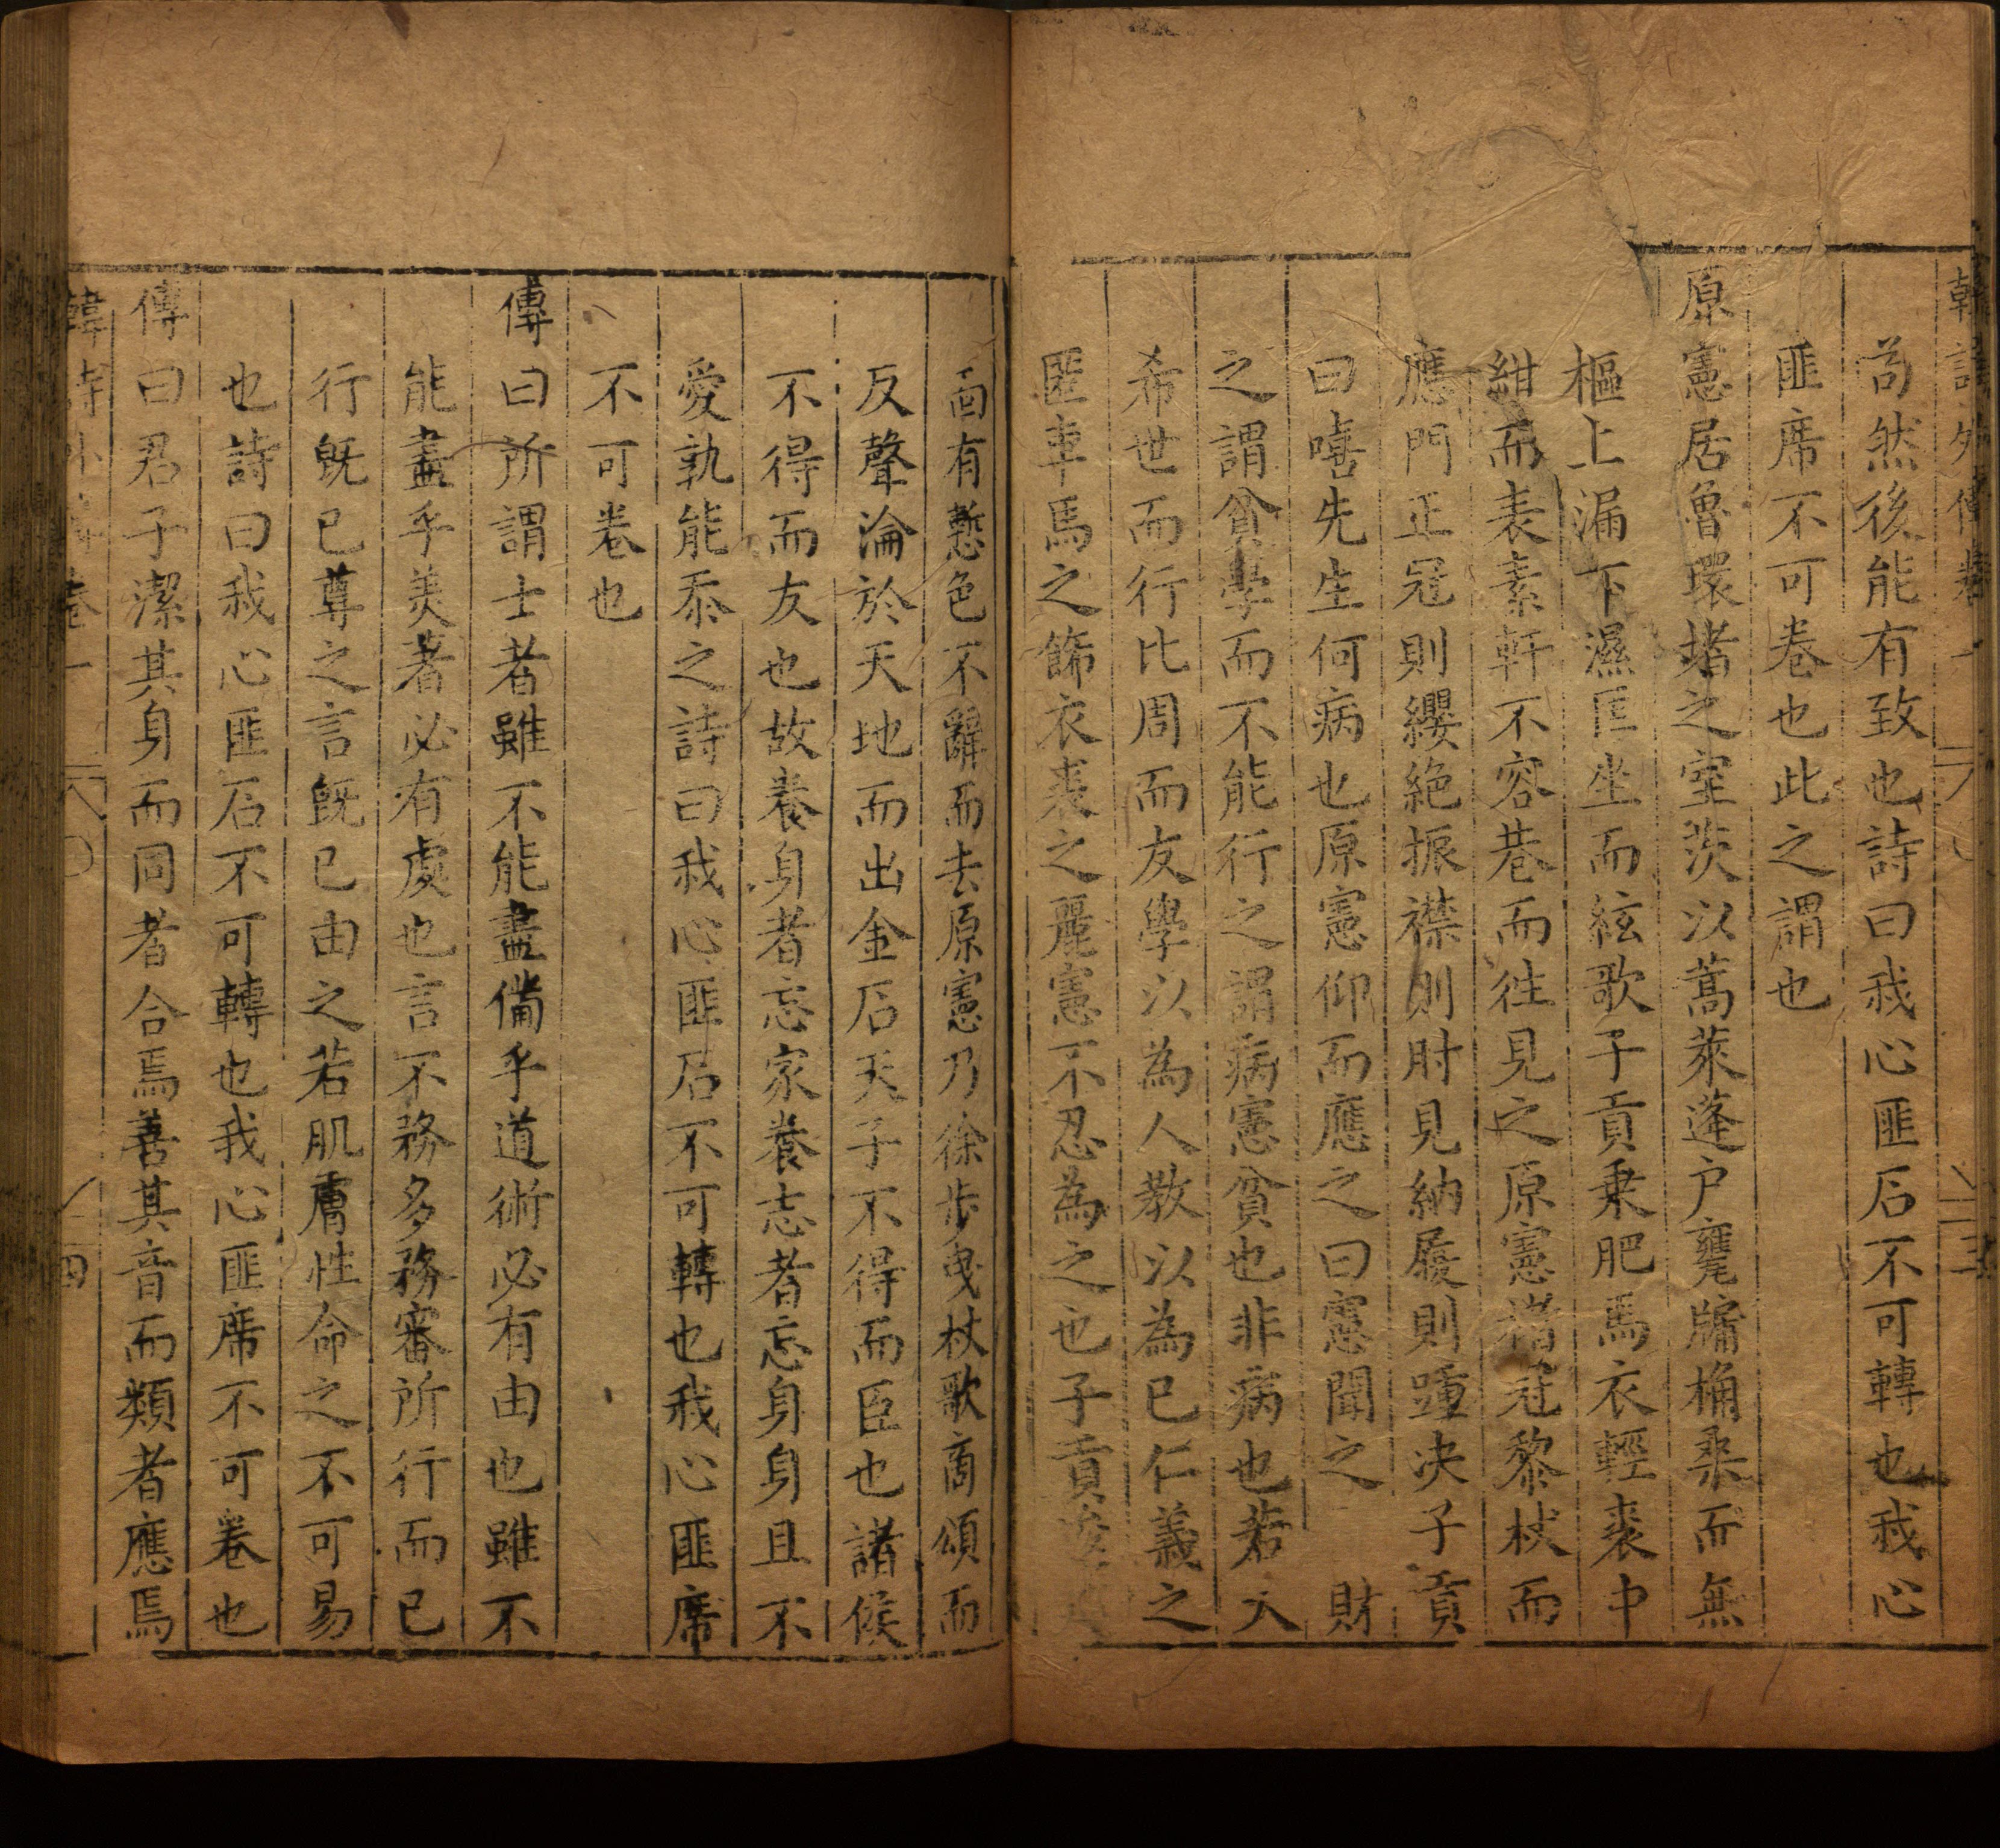 韓詩外傳卷一
尚然後能有致也詩曰我心匪石不可轉也我心
匪席不可卷也此之謂也
原憲居魯環堵之室茨以蒿萊蓬户甕牖桷桑而無
樞上漏下濕匡坐而絃歌子貢乗肥馬衣輕裘中
紺而表素軒不容巷而徃見之原憲楮冠黎杖而
應門正冠則纓絶振襟則肘見納履則踵决子貢
曰嘻先生何病也原憲仰而應之曰憲聞之 財
之謂貧學而不能行之謂病憲貧也非病也若夫
希世而行比周而友學以為人教以為已仁義之
匿車馬之飾衣裘之麗憲不忍為之也子貢逡
面有慙色不辭而去原憲乃徐步曳杖歌商頌而
反聲淪於天地而出金石天子不得而臣也諸侯
不得而友也故養身者忘家養志者忘身身且不
愛孰能忝之詩曰我心匪石不可轉也我心匪席
不可卷也
傳曰所謂士者雖不能盡備乎道術必有由也雖不
能盡乎美者必有處也言不務多務審所行而已
行既已尊之言既已由之若肌膚性命之不可易
也詩曰我心匪石不可轉也我心匪席不可卷也
傳曰君子潔其身而同者合焉善其音而類者應焉
韓詩外傳卷一
四